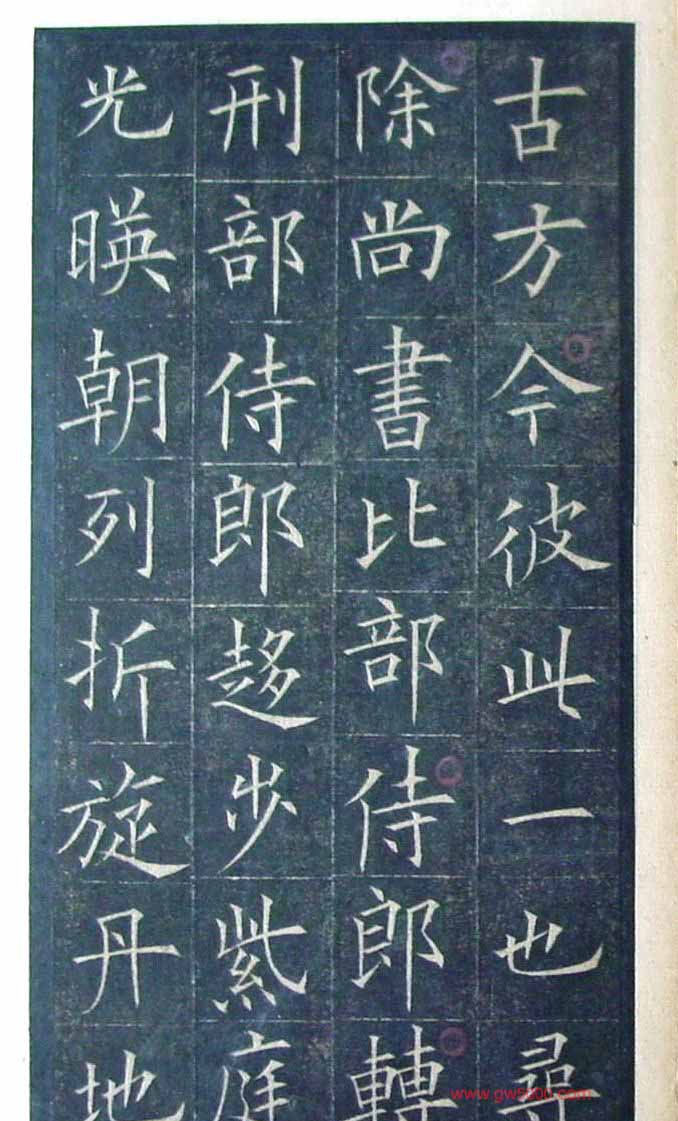 古方今彼此一也尋
除尚書比部侍郎轉
刑部侍郎趍步紫庭
光暎朝列折旋丹地
www.gw5000.com